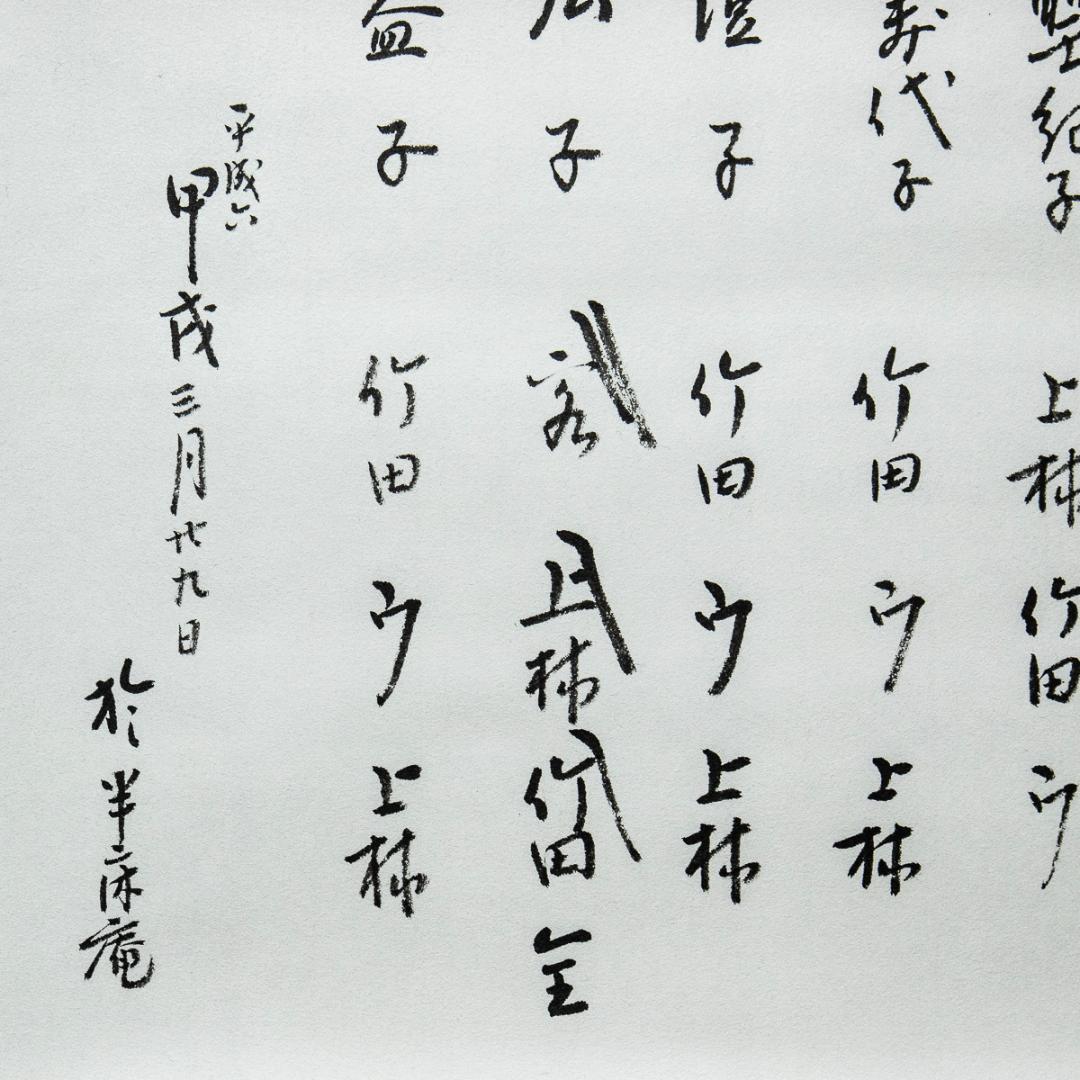 紀子 上林 竹田 ウ
寿代子 竹田 ウ 上林
子 竹田 ウ 上林
子 客 上林 竹田 全
益子 竹田 ウ 上林
平成六
甲戌三月廿九日
於半床庵